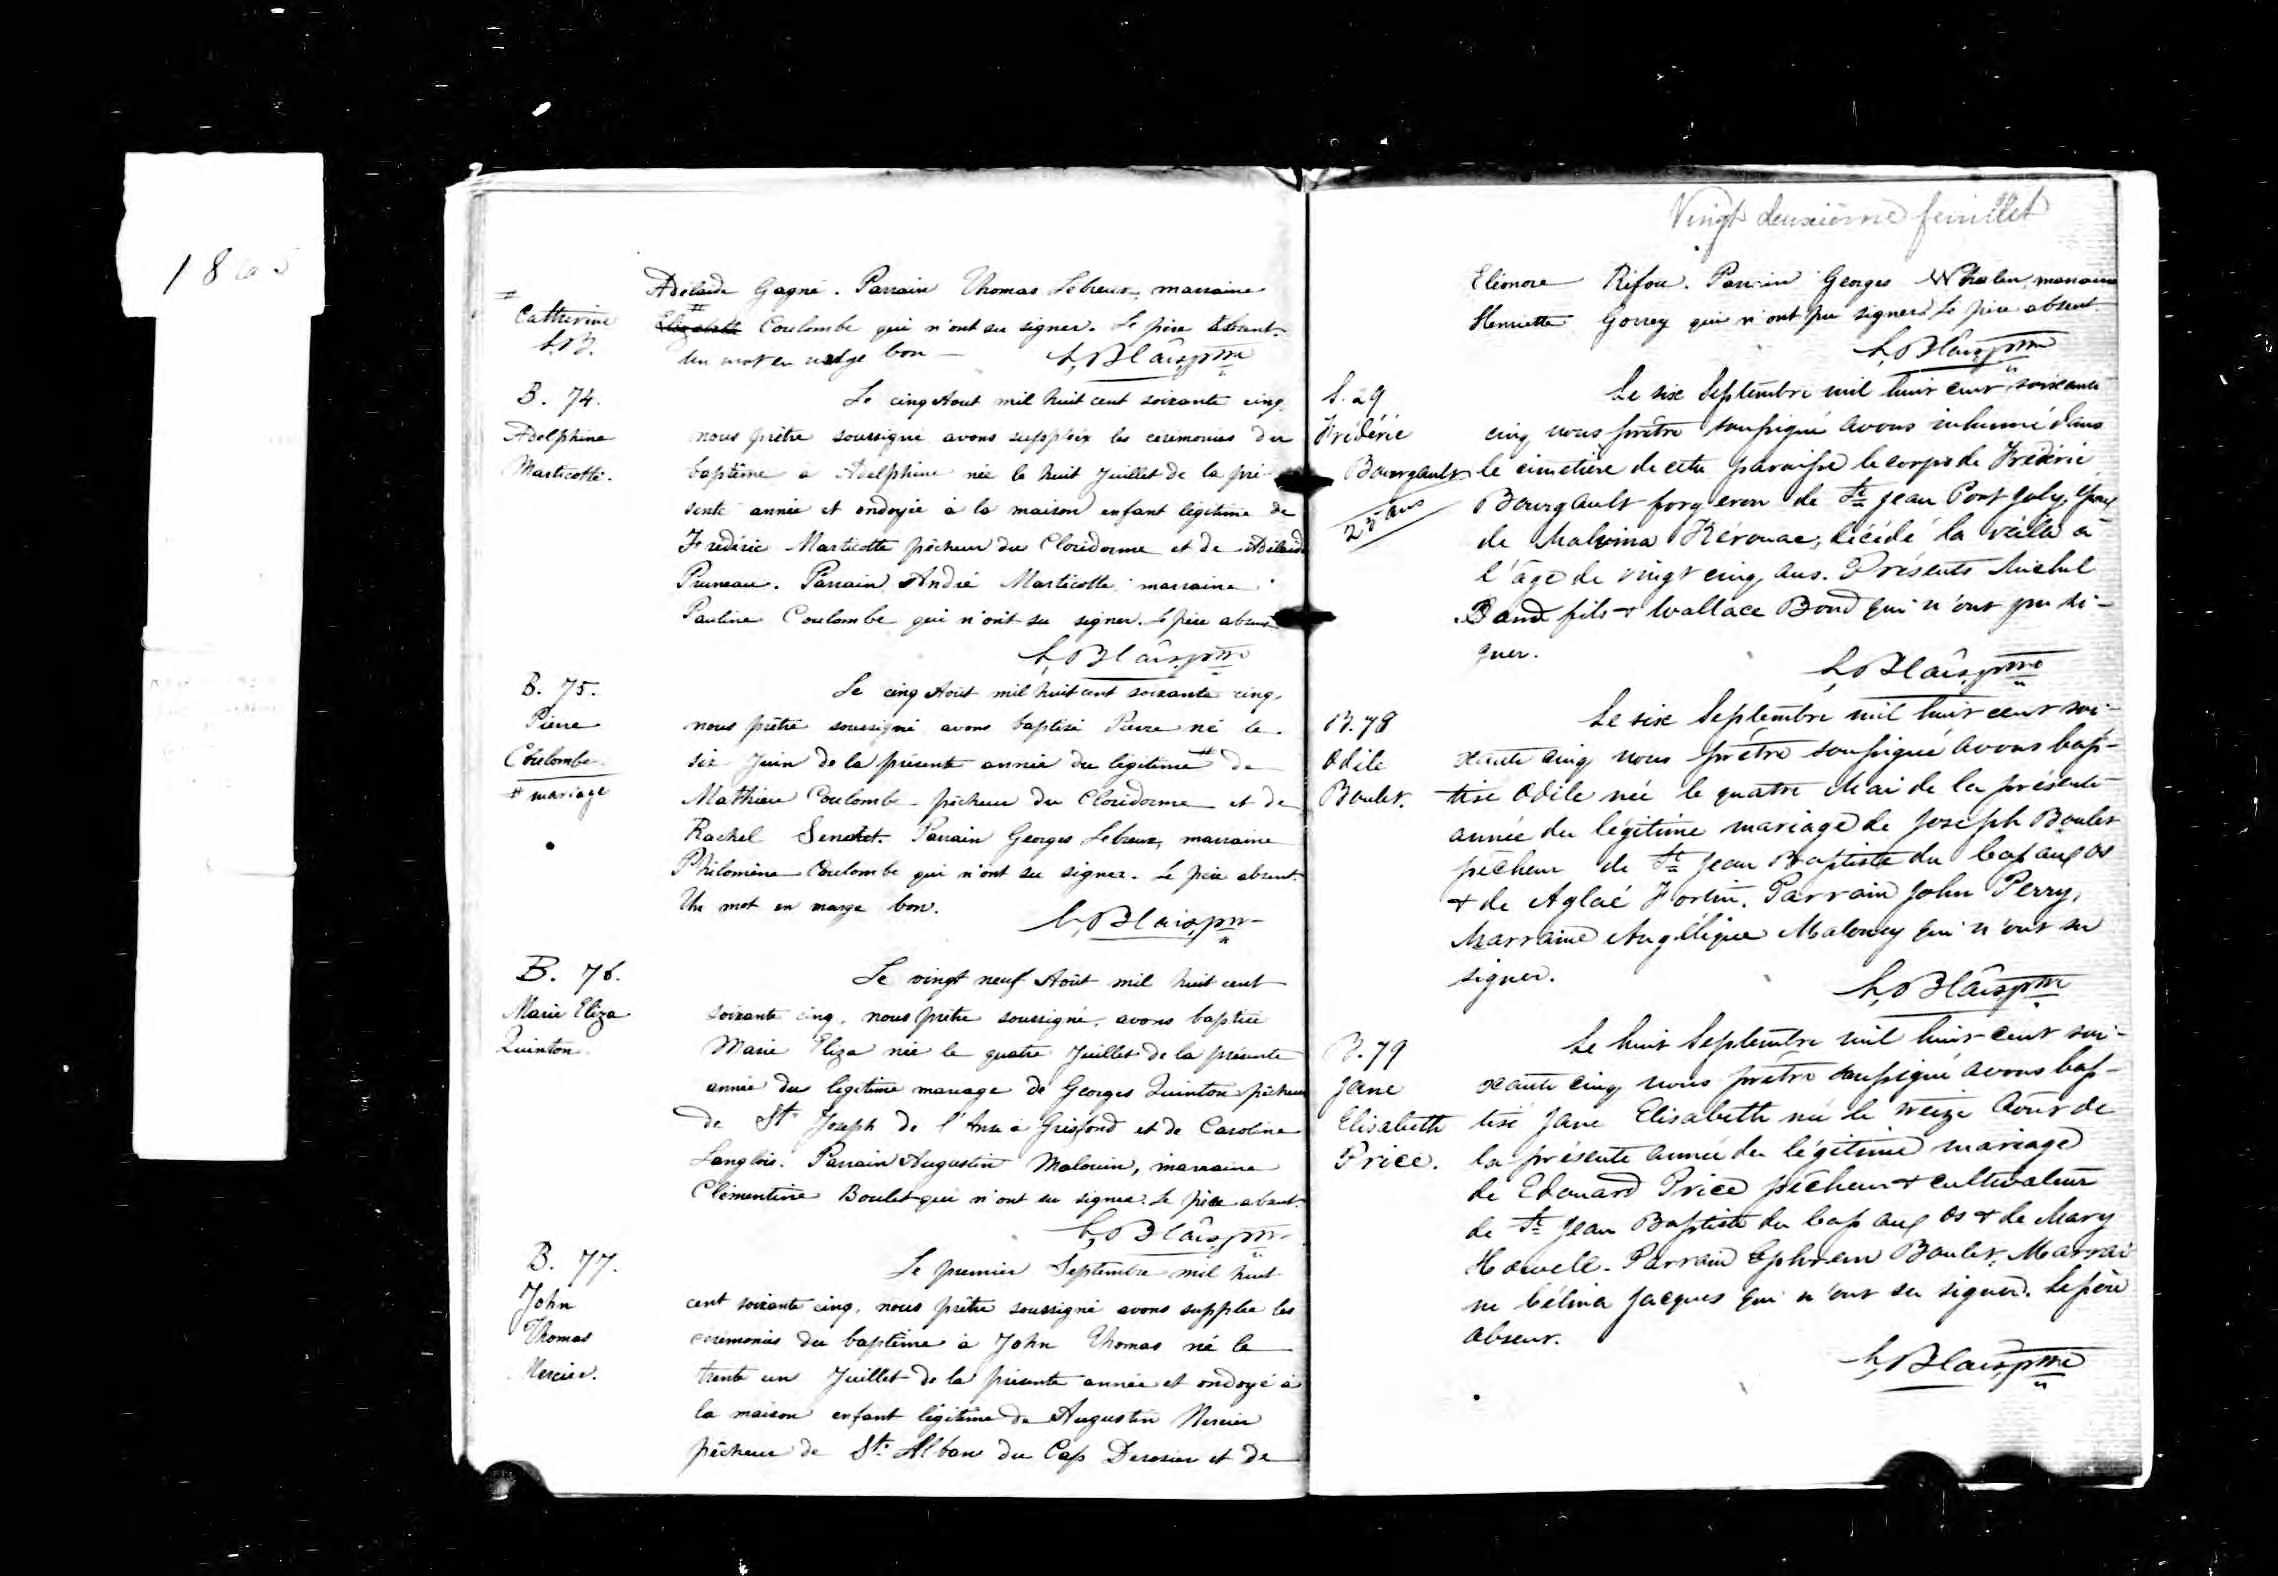 18
Adélaïde Gagné. Parrain Thomas Lebreux, marraine
# Catherine
L.B.
# Coulombe qui n'ont su signer. Le père absent.
Un mot en marge bon
L, Blais, ptre
B. 74.
Adelphine
Marticotte.
Le cinq Aout mil huit cent soixante cinq,
nous prêtre soussigné avons suppléé les cérémonies du
baptême à Adelphine née le huit Juillet de la pré
sente année et ondoyée à la maison enfant légitime de
Fréderic Marticotte pêcheur du Cloridorme et de Adélaïde
Pruneau. Parrain André Marticotte marraine
Pauline Coulombe qui n'ont su signer. Le père absent
L, Blais, ptre
B. 75.
Pierre
Coulombe
# mariage
Le cinq Aout mil huit cent soixante cinq,
nous prêtre soussigné avons baptisé Pierre né le
six Juin de la présente année du légitime # de
Mathieu Coulombe pêcheur du Cloridorme et de
Rachel Parrain Georges Lebreux, marraine
Philomène Coulombe qui n'ont su signer. Le père absent.
Un mot en marge bon.
L, Blais, ptre
B. 76.
Marie Eliza
Quinton
Le vingt neuf Août mil huit cent
soixante cinq, nous prêtre soussigné, avons baptisé
Marie Eliza née le quatre Juillet de la présente
année du légitime mariage de Georges Quinton pêcheur
de St Joseph de l'Anse à Grisfond et de Caroline
Langlois. Parrain Augustin Malouin, marraine
Clémentine Boulet qui n'ont su signer. Le père absent.
L, Blais, ptre
B. 77.
John
Thomas
Mercier.
Le premier Septembre mil huit
cent soixante cinq, nous prêtre soussigné avons suppléé les
cérémonies du baptême à John Thomas né le
trente un Juillet de la présente année et ondoyé à
la maison enfant légitime de Augustin Mercier
pêcheur de St Alban du Cap Derosier et de
Vingt deuxième feuillet
Eléonore Rifou. Parrain Georges Whalen, marraine
Henriette qui n'ont pu signer. Le père absent.
L, Blais, ptre
S. 29
Frédéric
Bourgault
25 ans
Le six Septembre mil huit cent soixante
cinq nous prêtre soussigné avons inhumé dans
le cimetière de cette paroisse le corps de Fréderic
Bourgault forgeron de St Jean Port Joly, époux
de Malvina Kérouac, décédé la veille à
l'âge de vingt cinq ans. Présents Michel
Bond fils & Wallace Bond qui n'ont pu si-
gner.
L, Blais, ptre
B. 78
Odile
Boulet.
Le six Septembre mil huit cent soi-
xante cinq nous prêtre soussigné avons bap-
tisé Odile née le quatre Mai de la présente
année du légitime mariage de Joseph Boulet
pêcheur de St Jean Baptiste du Cap aux Os
& de Aglaé Fortin. Parrain John Perry,
Marraine Angélique Maloney qui n'ont su
signer.
L, Blais, ptre
B. 79
Jane
Elisabeth
Price.
Le huit Septembre mil huit cent soi-
xante cinq nous prêtre soussigné avons bap-
tisé Jane Elisabeth née le treize Août de
la présente année du légitime mariage
de Edouard Price pêcheur & cultivateur
de St Jean Baptiste du Cap aux Os & de Mary
Howell. Parrain Ephrem Boulet, Marrai
ne Célina Jacques qui n'ont su signer. Le père
absent.
L, Blais, ptre